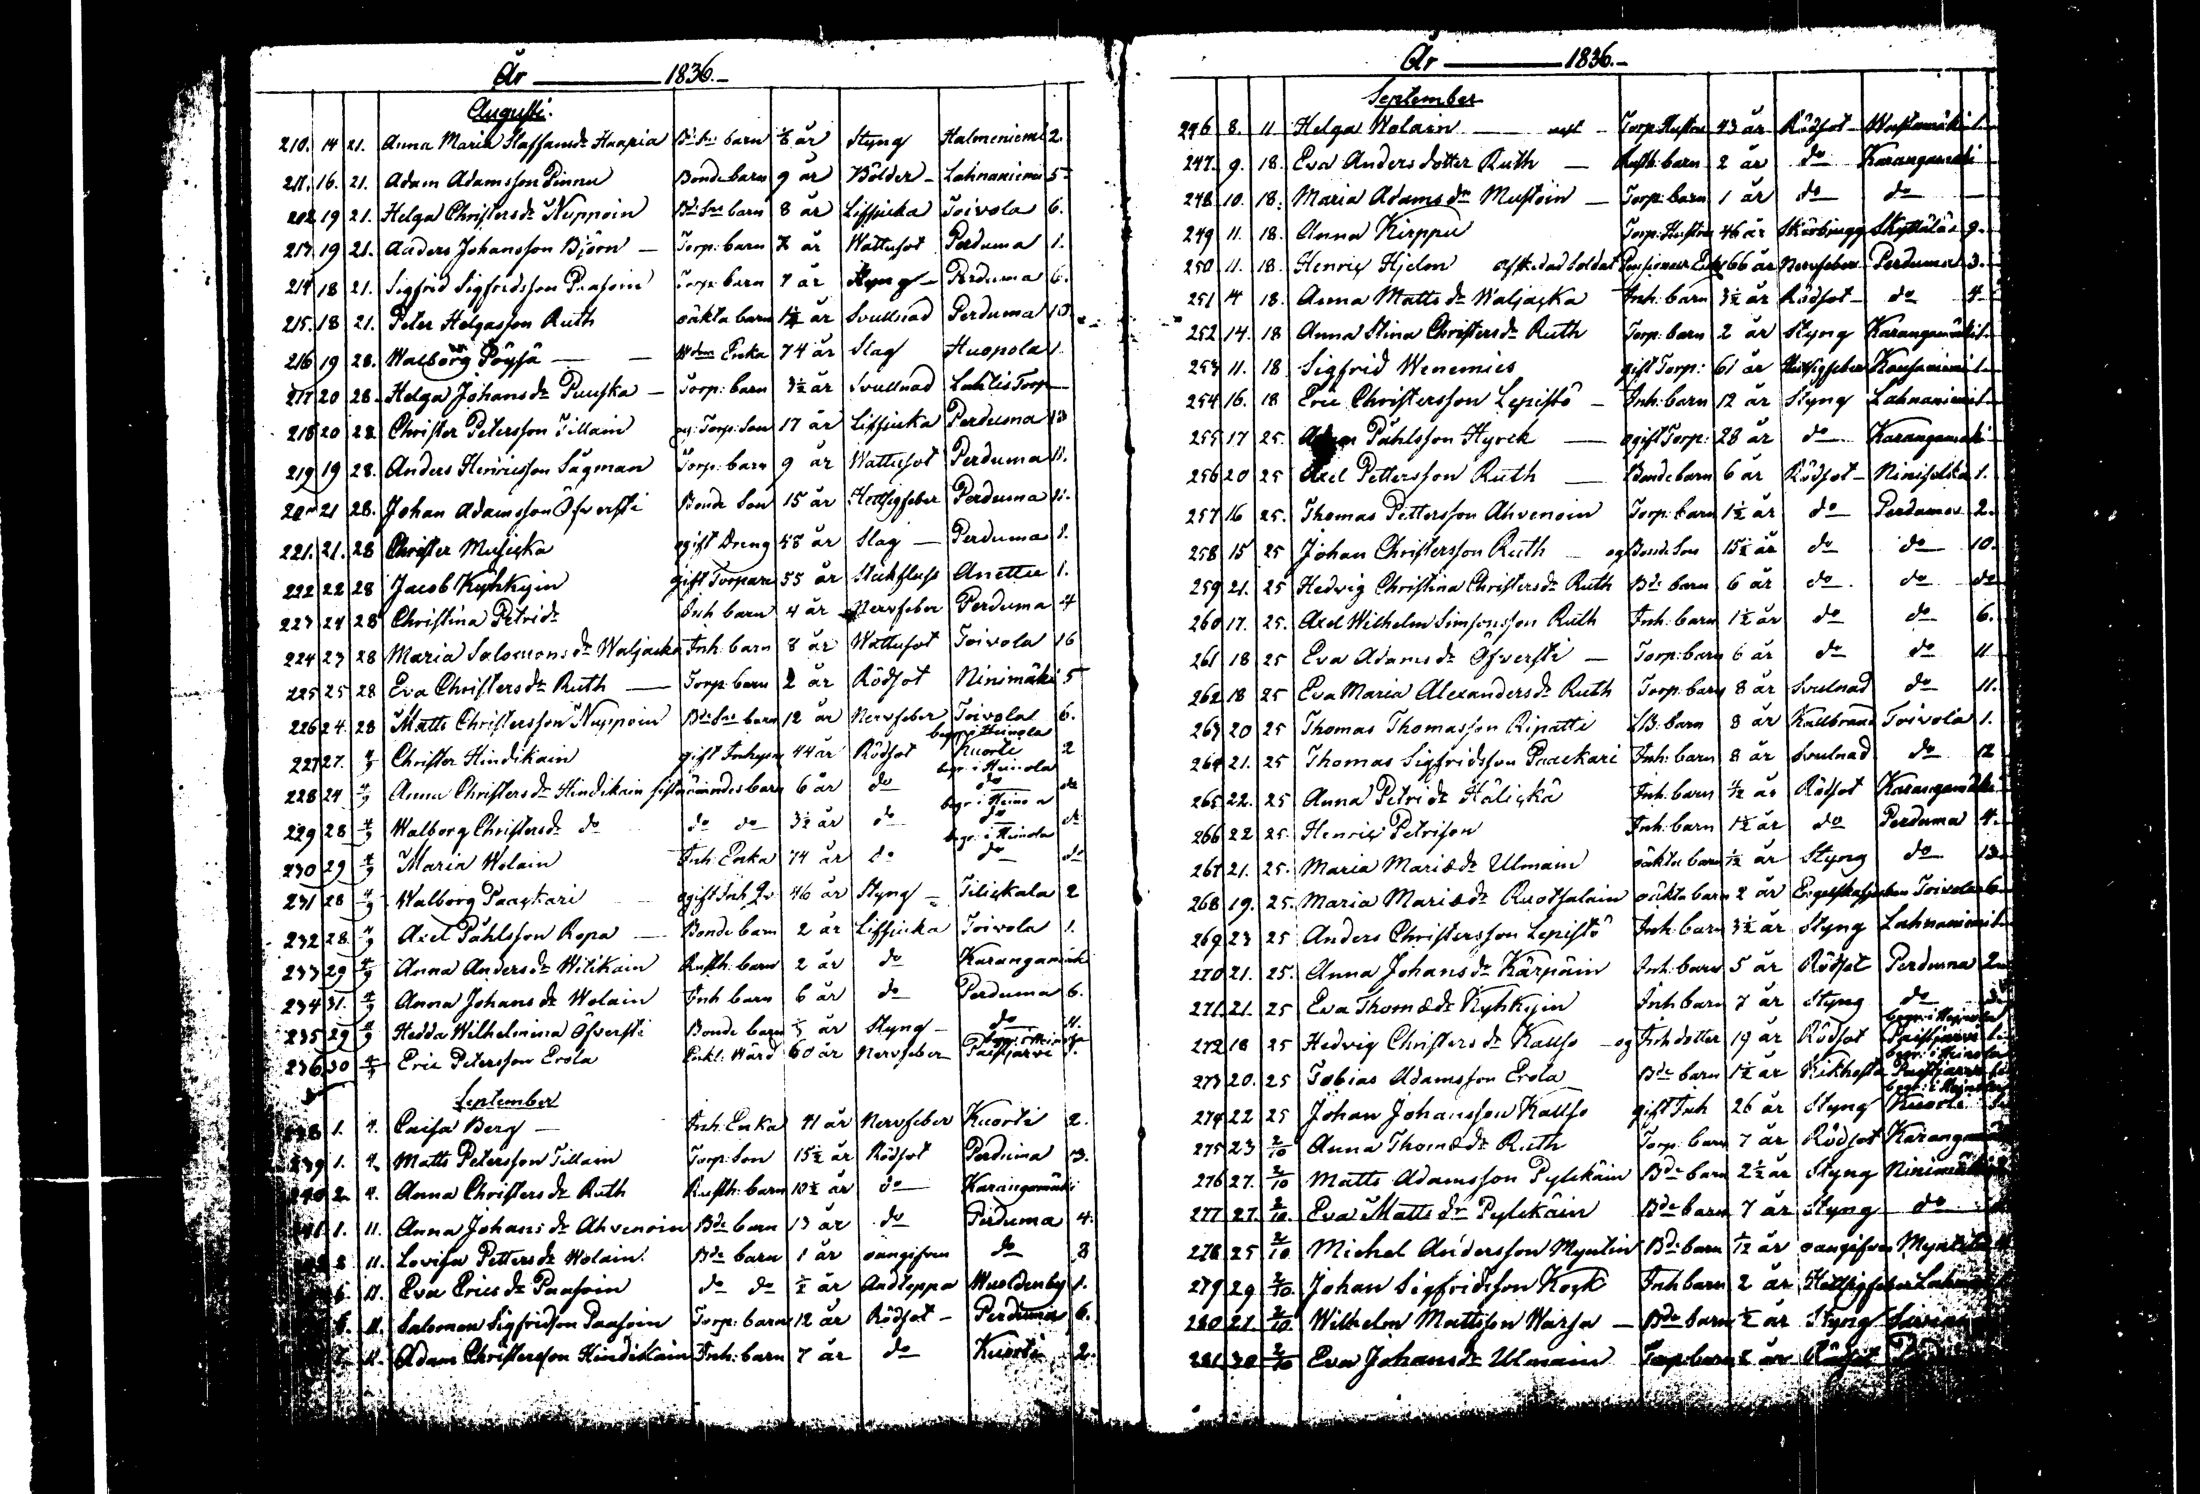 År ——— 1836.
Augusti.
210. 14 21. Anna Maria Staffansdr Haapia Bd: Sns barn år Styng Halmeniemi 2.
211. 16. 21. Adam Adamsson Pinnu Bonde barn 9 år Bölder Lahnaniemi 5
212 19 21. Helga Christersdr Nuppoin Bd: Sns barn 8 år Lifsjuka Toivola 6.
213. 19 21. Anders Johansson Björn — Torp: barn år Wattusot Perduma 1.
214 18 21. Sigfrid Sigfridsson Paasoin Torp: barn 7 år Styng — Perduma 6.
215. 18 21. Peter Helgasson Ruth oäkta barn år Svullnad Perduma 13
216 19 28. Walborg Pöysä — Enka 74 år Slag Huopola 1.
217 20 28. Helga Johansdr Puuska — Torp: barn 3½ år Svullnad Lahtis Torp
218 20 28 Christer Petersson Tillain og: Torp: Son 17 år Lifsjuka Perduma 13
219 19 28. Anders Henricsson Sågman Torp: barn 9 år Wattusot Perduma 11.
220 21 28. Johan Adamsson Öfversti Bonde Son 15 år Hettsigfeber Perduma 11.
221. 21. 28 Christer Musicka ogift Dreng 58 år Slag — Perduma 1.
222 22 28 Jacob Kyhkyin gift Torpare 55 år Stickfluss Anettu 1.
223 24 28 Christina Petridr Inh. barn 4 år Nervfeber Perduma 4
224 23 28 Maria Salomonsdr Waljacka Inh: barn 8 år Wattusot Toivola 16
225 25 28 Eva Christersdr Ruth — Torp: barn 2 år Rödsot Ninimäki 5
226 24. 28 Matts Christersson Nuppoin Bd: Sns barn 12 år Nervfeber Toivola 6.
227 27. 4/9 Christer Hindikain gift Inhyses 44 år Rödsot begr. i Heinola Kuorti 2
228 24 4/9 Anna Christersdr Hindikain barn 6 år do begr. i Heinola do do
229 28 4/9 Walborg Christersdr do do do 3½ år do begr. i Heinola do do
230 29 4/9 Maria Wolain Inh: Enka 74 år do begr. i Heinola do do
231 28 4/9 Walborg Paackari ogift Inh. Qv 46 år Styng — Tilickala 2
232 28. 4/9 Axel Påhlsson Ropa — Bonde barn 2 år Lifsjuka Toivola 1.
233 29 4/9 Anna Andersdr Witikain Rusth: barn 2 år do Karangamäki
234 31. 4/9 Anna Johansdr Wolain Inh barn 6 år do Perduma 6.
235 29 4/9 Hedda Wilhelmina Öfversti Bonde barn år Styng — do 11.
236 30 4/9 Eric Petersson Erola Enkl: Wärd 60 år Nervfeber begr. i Heinola Paistjärvi 1.
September
238 1. 4. Caisa Berg — Inh: Enka 41 år Nervfeber Kuorti 2.
239 1. 4. Matts Petersson Tillain Torp: Son 15½ år Rödsot Perduma 13.
240 2. 4. Anna Christersdr Ruth Rusth: barn 10½ år do Karangamäki
241 1. 11. Anna Johansdr Ahvenoin Bde barn 13 år do Perduma 4.
3 11. Lovisa Pettersdr Wolain Bde barn 1 år oangifven do 8
6. 11. Eva Ericsdr Paasoin do do ½ år Andteppa Wuoldenby 1.
11. Salomon Sigfridson Paasoin Torp: barn 12 år Rödsot — Perduma 6.
7. 11. Adam Christersson Hindikain Inh: barn 7 år do Kuorti 2.
År ——— 1836.
September
246 8. 11 Helga Wolain — Torp: Hustru 43 år Rödsot — 1.
247. 9. 18. Eva Anders dotter Ruth — Rusth: barn 2 år do Karangamäki
248 10. 18. Maria Adamsdr Mustoin — Torp: barn 1 år do do
249 11. 18. Anna Kirppu Torp: Hustru 46 år Skörbjugg Skyttälä 9.
250 11. 18. Henric Hjelm afskedad Soldat 66 år Nervfeber Perduma 3.
251 14 18. Anna Mattsdr Waljacka Inh: barn 3½ år Rödsot — do 4.
252 14. 18 Anna Stina Christersdr Ruth Torp: barn 2 år Styng Karangamäki 1.
253 11. 18 Sigfrid Wenemies gift Torp: 61 år Hettsigfeber Kansaniemi 1.
254 16. 18 Eric Christersson Lepistö — Inh: barn 12 år Styng Lahnaniemi 1.
255 17 25. Adam Påhlsson Hyrck — ogift Torp: 28 år do Karangamäki
256 20 25 Axel Pettersson Ruth — Bonde barn 6 år Rödsot — 1.
257 16 25. Thomas Pettersson Ahvenoin Torp: barn 1½ år do Perduma 2.
258 15 25 Johan Christersson Ruth — og Bonde Son 15½ år do do 10.
259 21. 25 Hedvig Christina Christersdr Ruth Bde barn 6 år do do do
260 17. 25. Axel Wilhelm Simonsson Ruth Inh: barn 1½ år do do 6.
261 18 25 Eva Adamsdr Öfversti — Torp: barn 6 år do do 11
262 18 25 Eva Maria Alexandersdr Ruth Torp: barn 8 år Svulnad do 11.
263 20 25 Thomas Thomasson Ripatti barn 8 år Kallbrand Toivola 1.
264 21. 25 Thomas Sigfridsson Paackari Inh: barn 8 år Svulnad do 12
265 22. 25 Anna Petridr Hälickä Inh: barn år Rödsot Karangamäki
266 22 25. Henric Petrison Inh: barn 1½ år do Perduma 4.
267 21. 25. Maria Mariædr Ulmain oäkta barn år Styng do 13.
268 19. 25. Maria Mariædr Ruotsalain oäkta barn 2 år Engelskasjukan Toivola 6
269 23 25 Anders Christersson Lepistö Inh: barn 3½ år Styng Lahnaniemi 1.
270 21. 25. Anna Johansdr Kärpäin Inh: barn 5 år Rödsot Perduma 2
271 21. 25 Eva Thomædr Kyhkyin Inh: barn 7 år Styng do
272 18 25 Hedvig Christersdr Kallso — og Inh dotter 19 år Rödsot begr. i Heinola Paistjärvi
273 20. 25 Tobias Adamsson Erola Bde barn 1½ år Kikhosta begr. i Heinola Paistjärvi
274 22 25 Johan Johansson Kallso gift Inh 26 år Styng begr. i Heinola Kuorti
275 23 2/10 Anna Thomædr Ruth Torp: barn 7 år Rödsot Karangamäki
276 27. 2/10 Matts Adamsson Pylckäin Bde barn 2½ år Styng Ninimäki
277 27. 2/10. Eva Mattsdr Pylckäin Bde barn 7 år Styng do
278 25 2/10 Michel Andersson Myntin Bde barn år oangifven
279 29 2/10. Johan Sigfridsson Kock Inh barn 2 år Hettsigfeber
280 21. 2/10. Wilhelm Mattsson Warsa — Bde barn ½ år Styng
281 30 2/10 Eva Johansdr Ulmain Torp: barn 2 år Rödsot